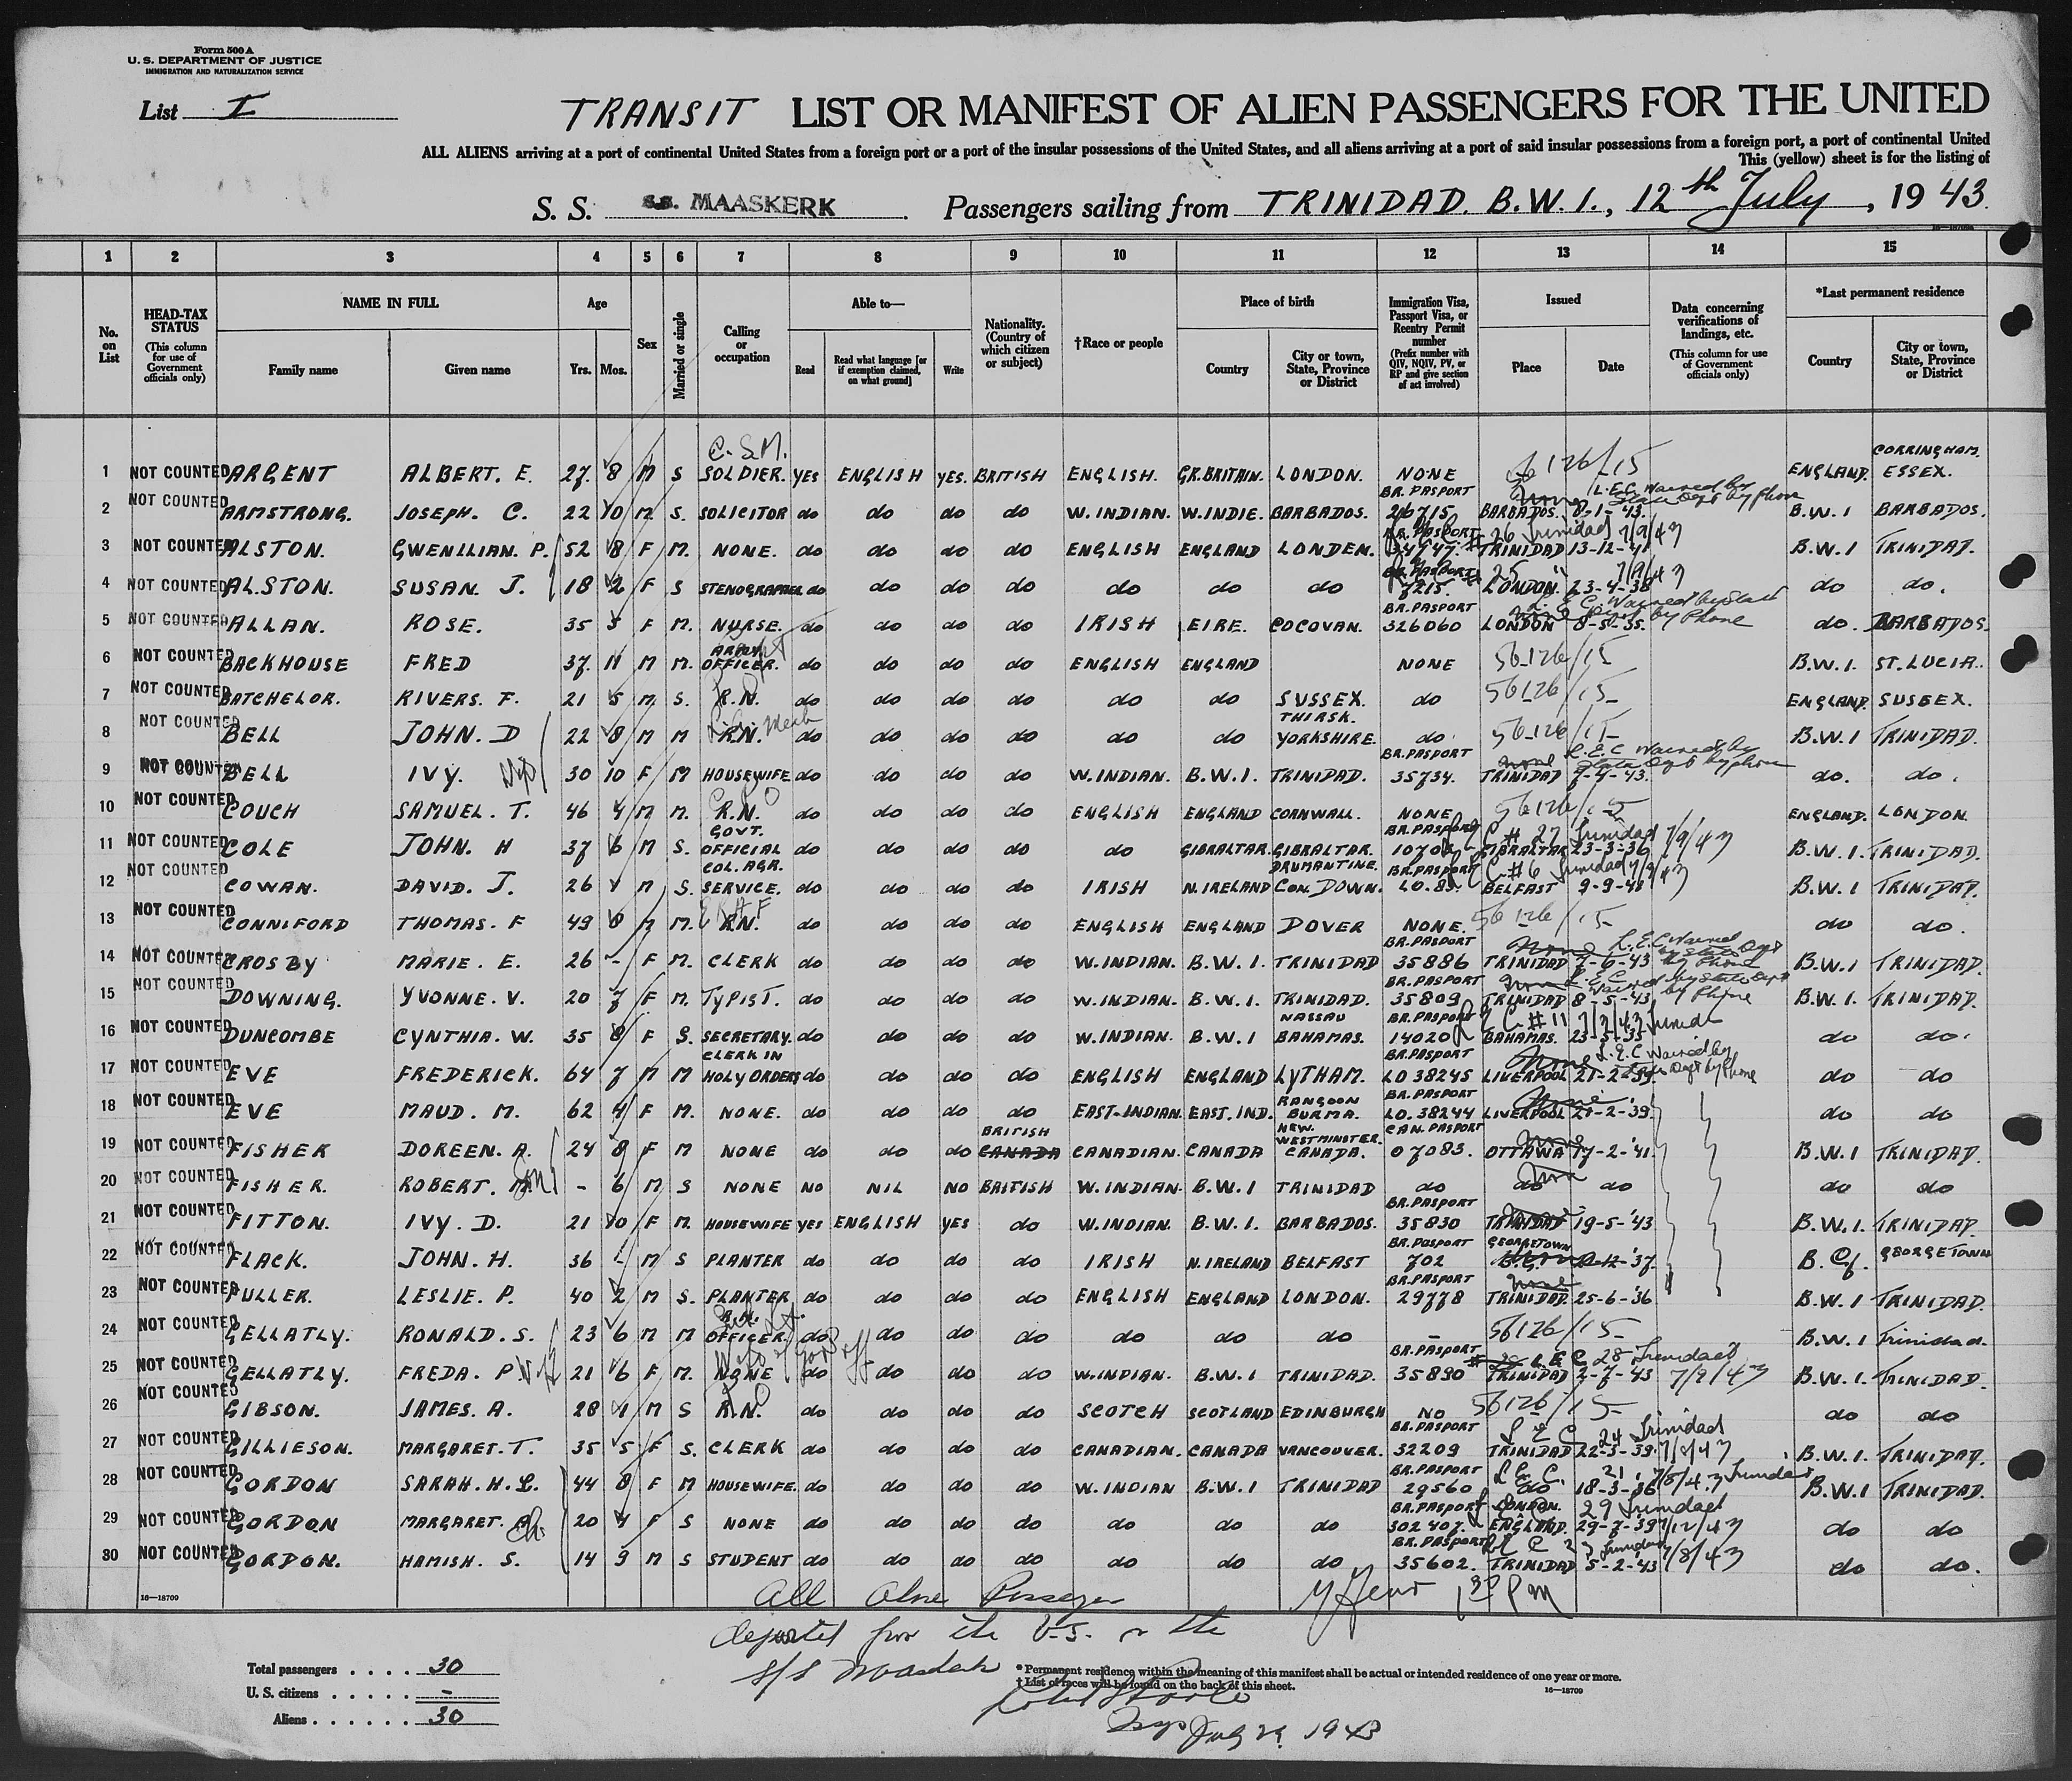 Form 500 A
U. S. DEPARTMENT OF JUSTICE
IMMIGRATION AND NATURALIZATION SERVICE
List I
TRANSIT LIST OR MANIFEST OF ALIEN PASSENGERS FOR THE UNITED
ALL ALIENS arriving at a port of continental United States from a foreign port or a port of the insular possessions of the United States, and all aliens arriving at a port of said insular possessions from a foreign port, a port of continental United
This (yellow) sheet is for the listing of
S. S. S.S. MAASKERK Passengers sailing from TRINIDAD. B.W.I., 12th July, 1943.
1 2 3 4 5 6 7 8 9 10 11 12 13 14 15
No. on List
HEAD-TAX STATUS (This column for use of Government officials only)
NAME IN FULL
Family name Given name
Age Yrs. Mos.
Sex
Married or single
Calling or occupation
Able to— Read Read what language [or if exemption claimed, on what ground] Write
Nationality. (Country of which citizen or subject)
†Race or people
Place of birth Country City or town, State, Province or District
Immigration Visa, Passport Visa, or Reentry Permit number (Prefix number with QIV, NQIV, PV, or RP and give section of act involved)
Issued Place Date
Data concerning verifications of landings, etc. (This column for use of Government officials only)
*Last permanent residence Country City or town, State, Province or District
1 NOT COUNTED ARGENT ALBERT. E. 27. 8 M S C.S.M. SOLDIER. YES ENGLISH YES. BRITISH ENGLISH. GR. BRITAIN. LONDON. NONE 56126/15 ENGLAND. CORRINGHAM. ESSEX.
2 NOT COUNTED ARMSTRONG. JOSEPH. C. 22 10 M. S. SOLICITOR do do do do W. INDIAN. W. INDIE. BARBADOS. BR. PASPORT 26715. BARBADOS. 8-1-43. L.E.C. Waived by State Dept by phone B.W.I BARBADOS.
3 NOT COUNTED ALSTON. GWENLLIAN. P. 52 8 F M. NONE. do do do do ENGLISH ENGLAND LONDEN. BR. PASPORT # 26 Trinidad 7/9/43 TRINIDAD 13-12-41 B.W.I TRINIDAD.
4 NOT COUNTED ALSTON. SUSAN. J. 18 2 F S STENOGRAPHER do do do do do do do BR. PASPORT 7215. 25 " 7/9/43 LONDON. 23-4-38 do do.
5 NOT COUNTED ALLAN. ROSE. 35 5 F M. NURSE. do do do do IRISH EIRE. COCOVAN. BR. PASPORT 326060 LONDON 8-5-35. L.E.C. Waived by State Dept by Phone do. BARBADOS.
6 NOT COUNTED BACKHOUSE FRED 37. 11 M M. ARMY OFFICER. do do do do ENGLISH ENGLAND NONE 56126/15 B.W.I. ST. LUCIA.
7 NOT COUNTED BATCHELOR. RIVERS. F. 21 5 M S. R.N. do do do do do do SUSSEX. do 56126/15 ENGLAND. SUSSEX.
8 NOT COUNTED BELL JOHN. D 22 8 M M R.N. do do do do do do THIRSK. YORKSHIRE. do 56126/15 B.W.I TRINIDAD.
9 NOT COUNTED BELL IVY. 30 10 F M HOUSEWIFE do do do do W. INDIAN. B.W.I. TRINIDAD. BR. PASPORT 35734. TRINIDAD 7-4-43. L.E.C Waived by State Dept by phone do. do.
10 NOT COUNTED COUCH SAMUEL. T. 46 4 M M. R.N. do do do do ENGLISH ENGLAND CORNWALL. NONE 56126/15 ENGLAND. LONDON.
11 NOT COUNTED COLE JOHN. H 37 6 M S. GOVT. OFFICIAL do do do do do GIBRALTAR. GIBRALTAR. BR. PASPORT L E C # 27 Trinidad 7/9/43 GIBRALTAR 23-3-36 B.W.I. TRINIDAD.
12 NOT COUNTED COWAN. DAVID. J. 26 M S. COL. AGR. SERVICE. do do do do IRISH N. IRELAND DRUMANTINE. CON. DOWN. BR. PASPORT L E C # 6 Trinidad 7/9/43 BELFAST B.W.I TRINIDAD.
13 NOT COUNTED CONNIFORD THOMAS. F 49 8 M M. R.N. do do do do ENGLISH ENGLAND DOVER NONE. 56126/15 do do.
14 NOT COUNTED CROSBY MARIE. E. 26 - F M. CLERK do do do do W. INDIAN. B.W.I. TRINIDAD BR. PASPORT 35886 TRINIDAD 7-6-43 L.E.C Waived by State Dept by Phone B.W.I TRINIDAD.
15 NOT COUNTED DOWNING. YVONNE. V. 20 7 F M. TYPIST. do do do do W. INDIAN. B.W.I. TRINIDAD. BR. PASPORT 35809 TRINIDAD 8-5-43 L.E.C Waived by State Dept by Phone B.W.I. TRINIDAD.
16 NOT COUNTED DUNCOMBE CYNTHIA. W. 35 8 F S. SECRETARY. do do do do W. INDIAN. B.W.I NASSAU BAHAMAS. BR. PASPORT 14020 L E C # 11 BAHAMAS. 23-5-35 do do.
17 NOT COUNTED EVE FREDERICK. 64 7 M M CLERK IN HOLY ORDERS do do do do ENGLISH ENGLAND LYTHAM. BR. PASPORT LO 38245 LIVERPOOL 21-2-39. L.E.C Waived by State Dept by Phone do do
18 NOT COUNTED EVE MAUD. M. 62 4 F M. NONE. do do do do EAST-INDIAN. EAST. IND. RANGOON BURMA. BR. PASPORT LO. 38244 LIVERPOOL 21-2-39. do do
19 NOT COUNTED FISHER DOREEN. A. 24 8 F M NONE do do do BRITISH CANADA CANADIAN. CANADA NEW. WESTMINSTER. CANADA. CAN. PASPORT 07083. OTTAWA 17-2-41. B.W.I TRINIDAD.
20 NOT COUNTED FISHER. ROBERT. M. Son - 6 M S NONE NO NIL NO BRITISH W. INDIAN. B.W.I TRINIDAD do do do do do
21 NOT COUNTED FITTON. IVY. D. 21 10 F M. HOUSEWIFE YES ENGLISH YES do W. INDIAN. B.W.I. BARBADOS. BR. PASPORT 35830 TRINIDAD 19-5-'43 B.W.I. TRINIDAD.
22 NOT COUNTED FLACK. JOHN. H. 36 - M S PLANTER do do do do IRISH N. IRELAND BELFAST BR. PASPORT 702 GEORGETOWN B.G. B.G. GEORGETOWN
23 NOT COUNTED FULLER. LESLIE. P. 40 2 M S. PLANTER do do do do ENGLISH ENGLAND LONDON. BR. PASPORT 29778 TRINIDAD. 25-6-'36 B.W.I TRINIDAD.
24 NOT COUNTED GELLATLY. RONALD. S. 23 6 M M OFFICER. do do do do do do do - 56126/15 B.W.I Trinidad.
25 NOT COUNTED GELLATLY. FREDA. P Wife 21 6 F M. NONE do do do do W. INDIAN. B.W.I TRINIDAD. BR. PASPORT 35890 L E C 28 Trinidad TRINIDAD 2-7-43 7/9/43 B.W.I. TRINIDAD.
26 NOT COUNTED GIBSON. JAMES. A. 28 1 M S R.N. do do do do SCOTCH SCOTLAND EDINBURGH NO 56126/15 do do
27 NOT COUNTED GILLIESON. MARGARET. T. 35 5 F S. CLERK do do do do CANADIAN. CANADA VANCOUVER. BR. PASPORT 32209 L E C 24 Trinidad TRINIDAD 22-3-39. 7/8/43 B.W.I. TRINIDAD.
28 NOT COUNTED GORDON SARAH. H. L. 44 8 F M HOUSEWIFE. do do do do W. INDIAN B.W.I TRINIDAD BR. PASPORT 29560 L E C. 21. 7/8/43 Trinidad do 18-3-36 B.W.I TRINIDAD.
29 NOT COUNTED GORDON MARGARET. A. Ch. 20 4 F S NONE do do do do do do do BR. PASPORT 302407. L E C 29 Trinidad LONDON. ENGLAND. 29-7-39 7/12/43 do do
30 NOT COUNTED GORDON. HAMISH. S. 14 9 M S STUDENT do do do do do do do BR. PASPORT 35602. L E C 23 Trinidad TRINIDAD 5-2-'43 7/8/43 do do.
16—18709
All Passenger 1 30 PM
departed for the U.S. on the
S/S
Total passengers . . . . 30
U. S. citizens . . . . . -
Aliens . . . . . . 30
* Permanent residence within the meaning of this manifest shall be actual or intended residence of one year or more.
† List of races will be found on the back of this sheet.
16—18709
July 29 1943